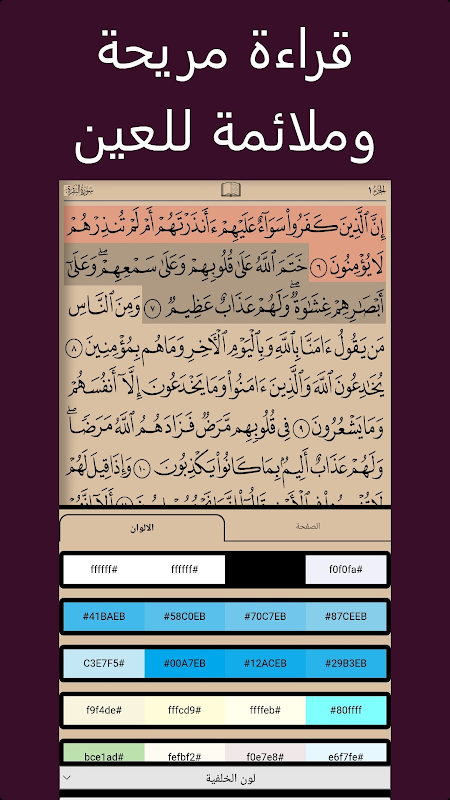 قراءة مريحة
وملائمة للعين
الجزء ١ سورة البقرة
إِنَّ ٱلَّذِينَ كَفَرُوا۟ سَوَآءٌ عَلَيْهِمْ ءَأَنذَرْتَهُمْ أَمْ لَمْ تُنذِرْهُمْ
لَا يُؤْمِنُونَ ٦ خَتَمَ ٱللَّهُ عَلَىٰ قُلُوبِهِمْ وَعَلَىٰ سَمْعِهِمْ ۖ وَعَلَىٰٓ
أَبْصَـٰرِهِمْ غِشَـٰوَةٌ ۖ وَلَهُمْ عَذَابٌ عَظِيمٌ ٧ وَمِنَ ٱلنَّاسِ
مَن يَقُولُ ءَامَنَّا بِٱللَّهِ وَبِٱلْيَوْمِ ٱلْـَٔاخِرِ وَمَا هُم بِمُؤْمِنِينَ ٨
يُخَـٰدِعُونَ ٱللَّهَ وَٱلَّذِينَ ءَامَنُوا۟ وَمَا يَخْدَعُونَ إِلَّآ أَنفُسَهُمْ
وَمَا يَشْعُرُونَ ٩ فِى قُلُوبِهِم مَّرَضٌ فَزَادَهُمُ ٱللَّهُ مَرَضًا ۖ
وَلَهُمْ عَذَابٌ أَلِيمٌۢ بِمَا كَانُوا۟ يَكْذِبُونَ ١٠ وَإِذَا قِيلَ لَهُمْ
الصفحة الالوان
ffffff# ffffff# f0f0fa#
#41BAEB #58C0EB #70C7EB #87CEEB
C3E7F5# #00A7EB #12ACEB #29B3EB
f9f4de# fffcd9# ffffeb# #80ffff
bce1ad# fefbf2# f0e7e8# e6f7fe#
لون الخلفية